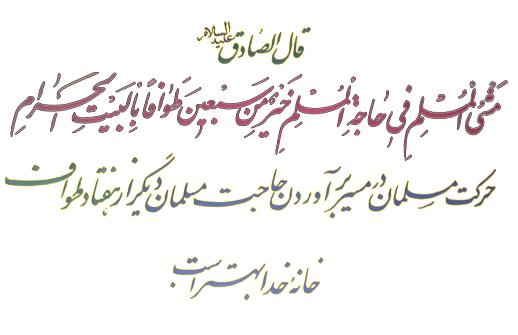 قال الصادق علیه السلام
مَشْیُ الْمُسْلِمِ فِی حٰاجَةِ الْمُسْلِمِ خَیْرٌ مِنْ سَبْعِینَ طَوٰافاً بِالْبَیْتِ الْحَرٰامِ
حرکت مسلمان در مسیر برآوردن حاجت مسلمان دیگر از هفتاد طواف
خانهٔ خدا بهتر است